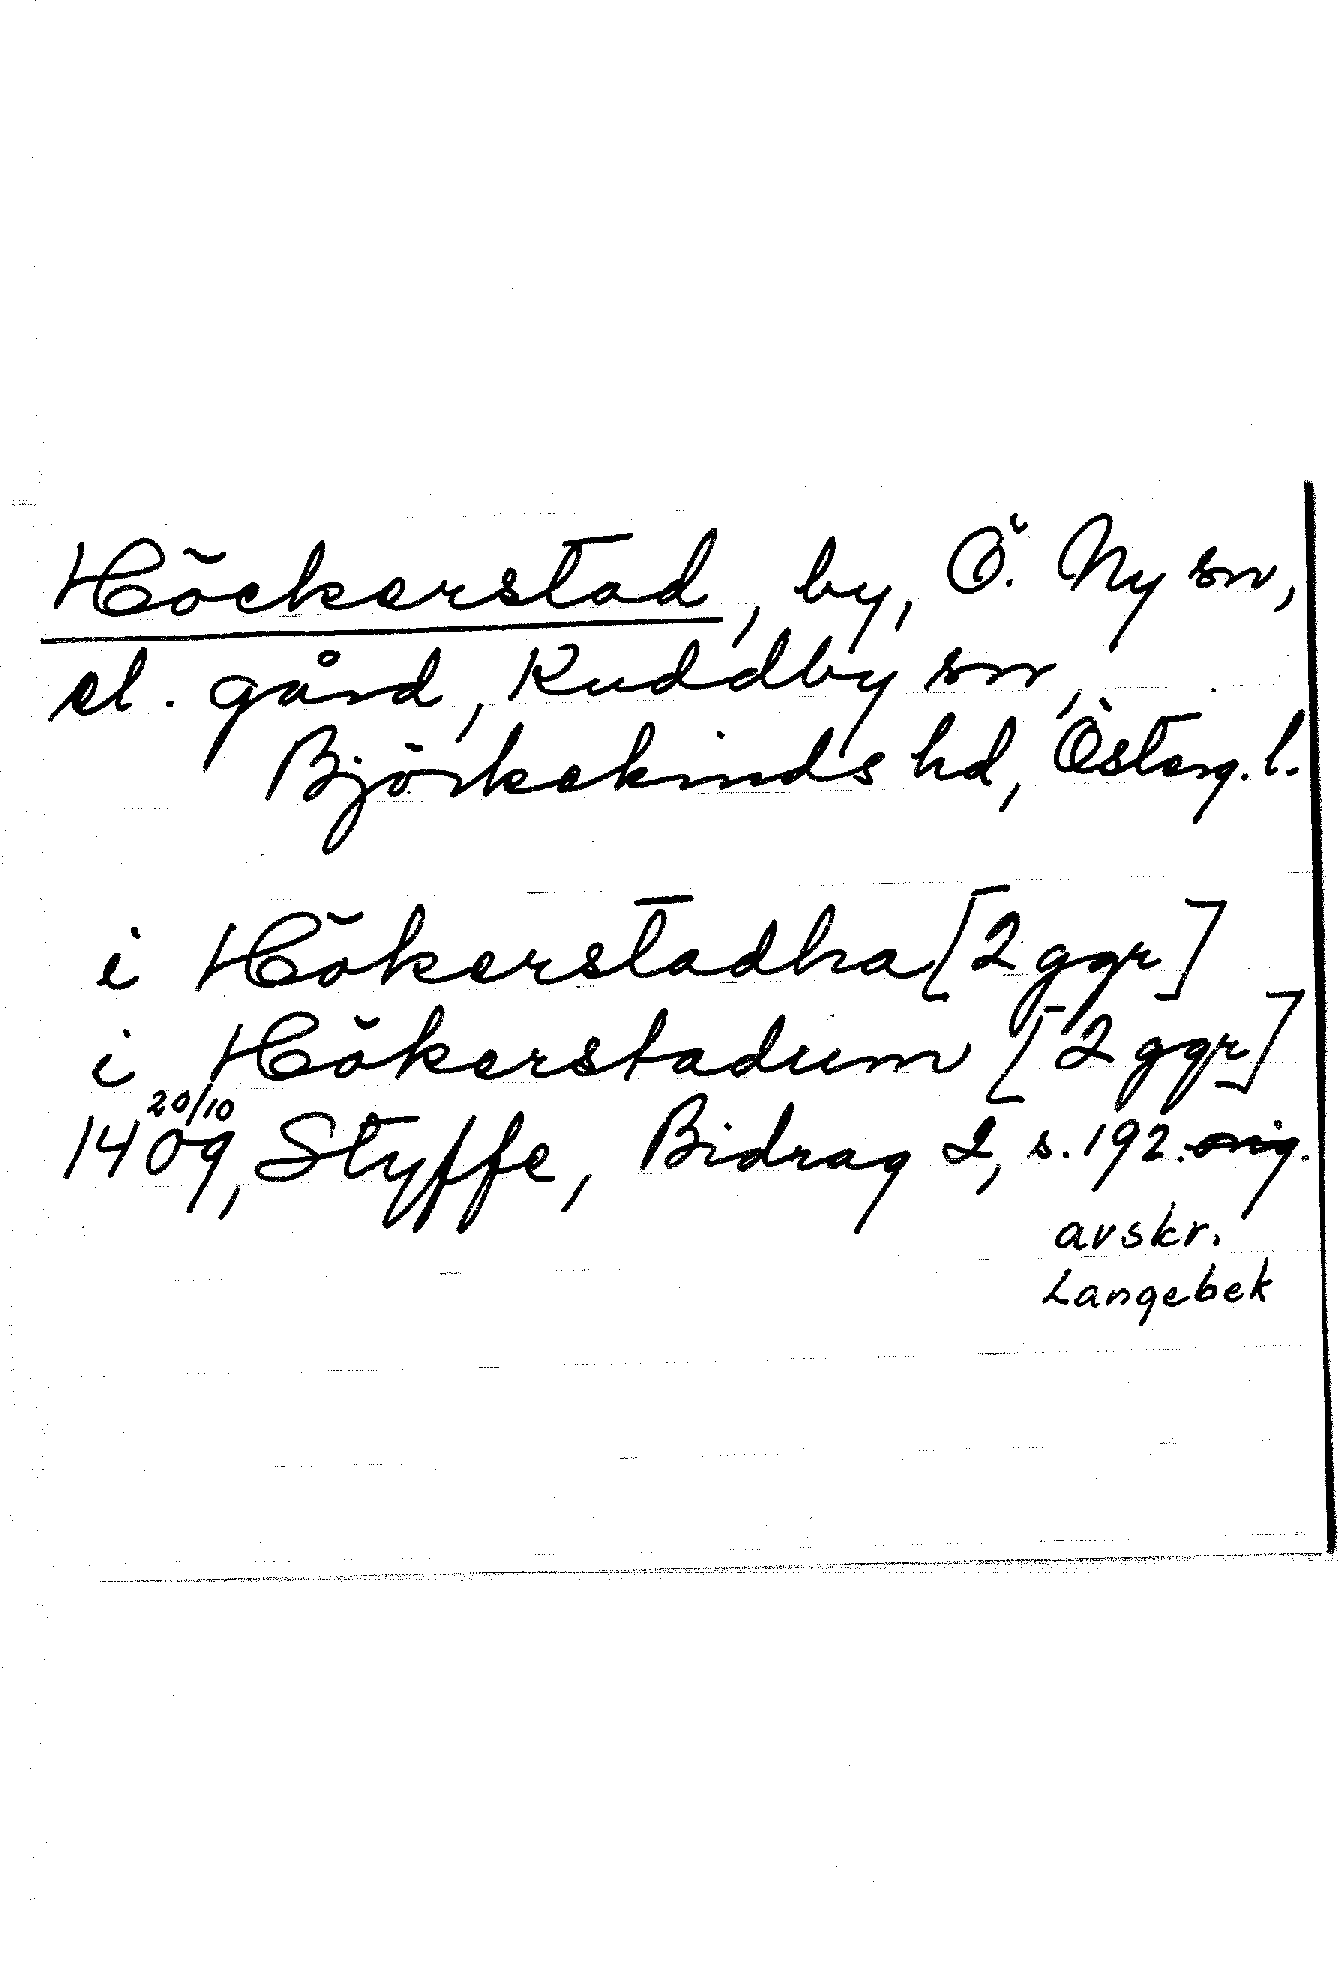 Höckerstad, by, Ö. Ny sn,
el. gård, Kuddby sn,
Björkekinds hd, Österg. l.
i Hökerstadha [2 ggr]
i Hökerstadum [2 ggr]
20/10
1409, Styffe, Bidrag 2, s. 192. orig.
avskr.
Langebek